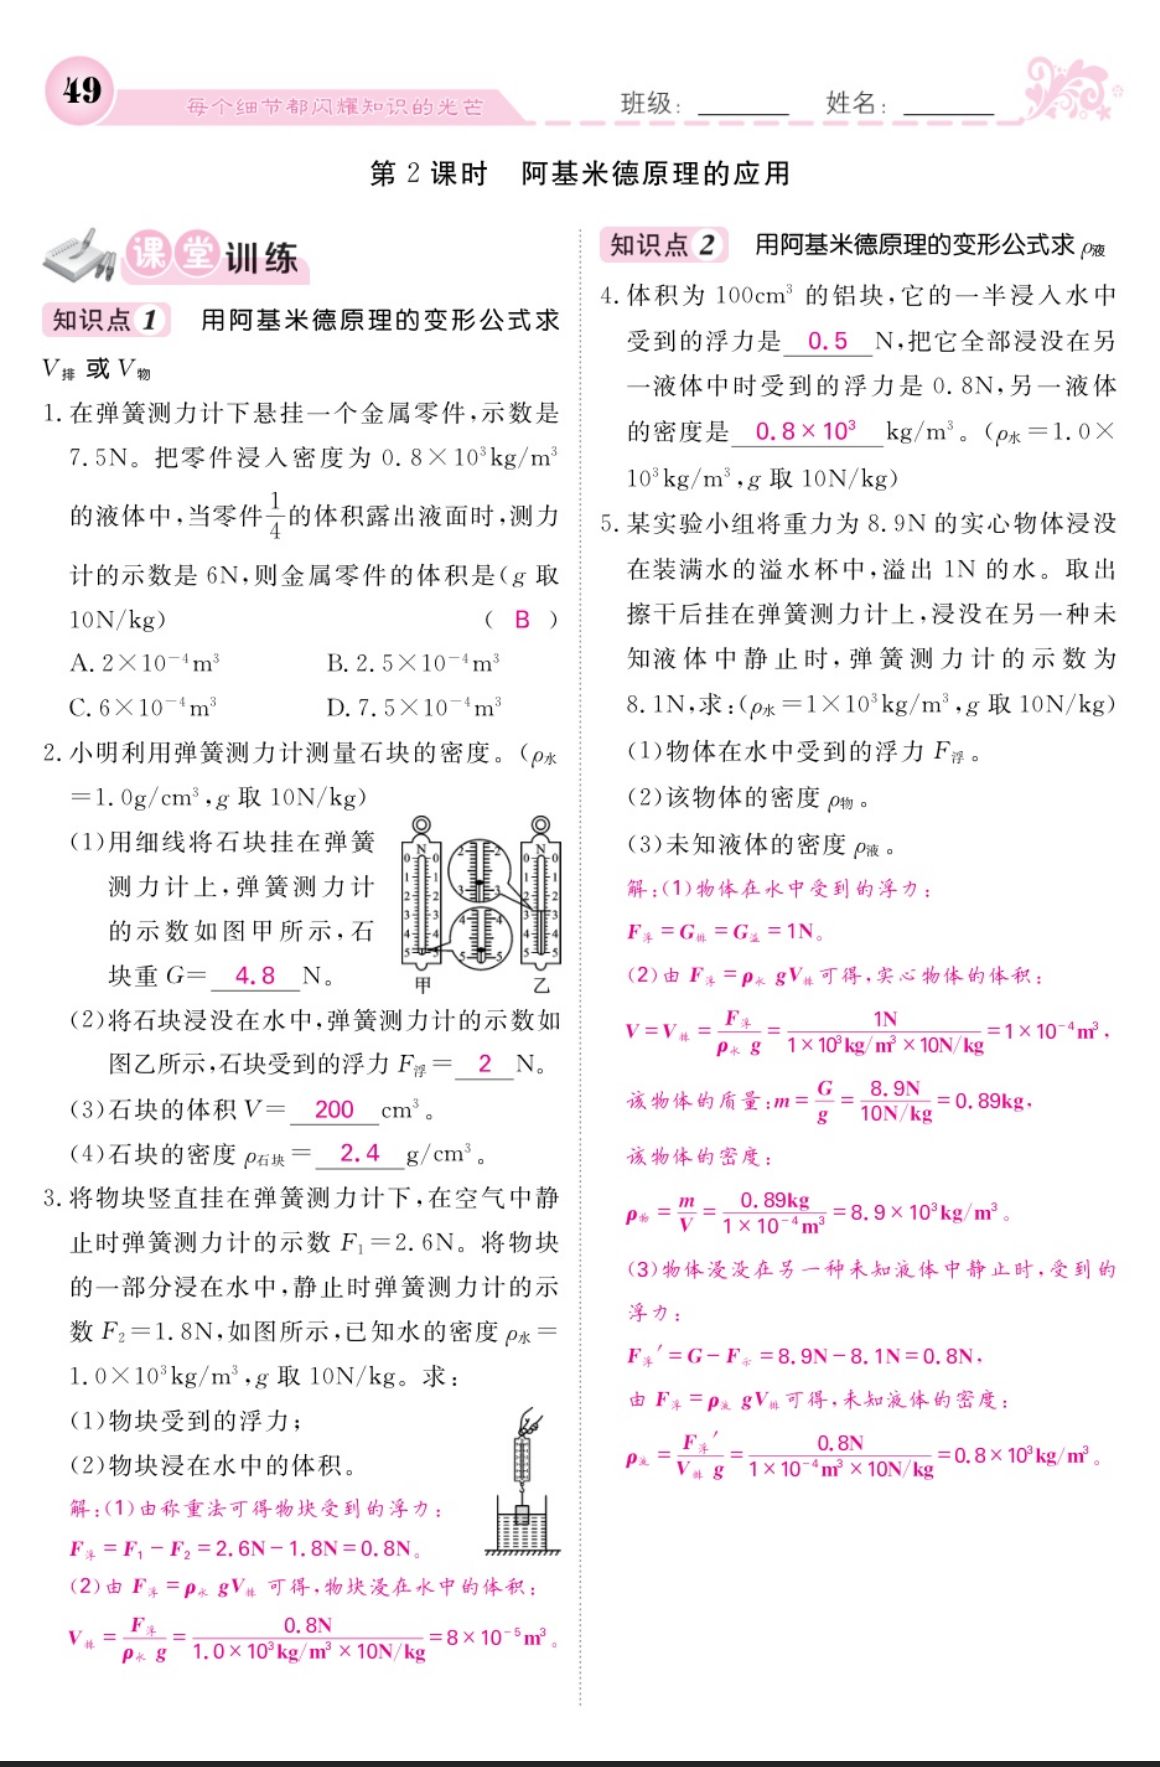 49
每个细节都闪耀知识的光芒
班级：______ 姓名：______
第 2 课时 阿基米德原理的应用
课堂训练
知识点 1 用阿基米德原理的变形公式求
V排 或 V物
1. 在弹簧测力计下悬挂一个金属零件,示数是
7.5N。把零件浸入密度为 0.8×10³kg/m³
的液体中,当零件1/4的体积露出液面时,测力
计的示数是 6N,则金属零件的体积是(g 取
10N/kg) ( B )
A. 2×10⁻⁴m³ B. 2.5×10⁻⁴m³
C. 6×10⁻⁴m³ D. 7.5×10⁻⁴m³
2. 小明利用弹簧测力计测量石块的密度。(ρ水
=1.0g/cm³,g 取 10N/kg)
(1)用细线将石块挂在弹簧
测力计上,弹簧测力计
的示数如图甲所示,石
块重 G= 4.8 N。
N
0 0
1 1
2 2
3 3
4 4
5 5
2 2
3 3
4 4
5 5
N
0 0
1 1
2 2
3 3
4 4
5 5
甲 乙
(2)将石块浸没在水中,弹簧测力计的示数如
图乙所示,石块受到的浮力 F浮= 2 N。
(3)石块的体积 V= 200 cm³。
(4)石块的密度 ρ石块= 2.4 g/cm³。
3. 将物块竖直挂在弹簧测力计下,在空气中静
止时弹簧测力计的示数 F₁=2.6N。将物块
的一部分浸在水中,静止时弹簧测力计的示
数 F₂=1.8N,如图所示,已知水的密度 ρ水=
1.0×10³kg/m³,g 取 10N/kg。求:
(1)物块受到的浮力;
(2)物块浸在水中的体积。
解:(1)由称重法可得物块受到的浮力:
F浮=F₁-F₂=2.6N-1.8N=0.8N。
(2)由 F浮=ρ水gV排 可得,物块浸在水中的体积:
V排=F浮/(ρ水g)=0.8N/(1.0×10³kg/m³×10N/kg)=8×10⁻⁵m³。
知识点 2 用阿基米德原理的变形公式求 ρ液
4. 体积为 100cm³ 的铝块,它的一半浸入水中
受到的浮力是 0.5 N,把它全部浸没在另
一液体中时受到的浮力是 0.8N,另一液体
的密度是 0.8×10³ kg/m³。(ρ水=1.0×
10³kg/m³,g 取 10N/kg)
5. 某实验小组将重力为 8.9N 的实心物体浸没
在装满水的溢水杯中,溢出 1N 的水。取出
擦干后挂在弹簧测力计上,浸没在另一种未
知液体中静止时,弹簧测力计的示数为
8.1N,求:(ρ水=1×10³kg/m³,g 取 10N/kg)
(1)物体在水中受到的浮力 F浮。
(2)该物体的密度 ρ物。
(3)未知液体的密度 ρ液。
解:(1)物体在水中受到的浮力:
F浮=G排=G溢=1N。
(2)由 F浮=ρ水gV排 可得,实心物体的体积:
V=V排=F浮/(ρ水g)=1N/(1×10³kg/m³×10N/kg)=1×10⁻⁴m³,
该物体的质量:m=G/g=8.9N/(10N/kg)=0.89kg,
该物体的密度:
ρ物=m/V=0.89kg/(1×10⁻⁴m³)=8.9×10³kg/m³。
(3)物体浸没在另一种未知液体中静止时,受到的
浮力:
F浮′=G-F示=8.9N-8.1N=0.8N,
由 F浮=ρ液gV排 可得,未知液体的密度:
ρ液=F浮′/(V排g)=0.8N/(1×10⁻⁴m³×10N/kg)=0.8×10³kg/m³。